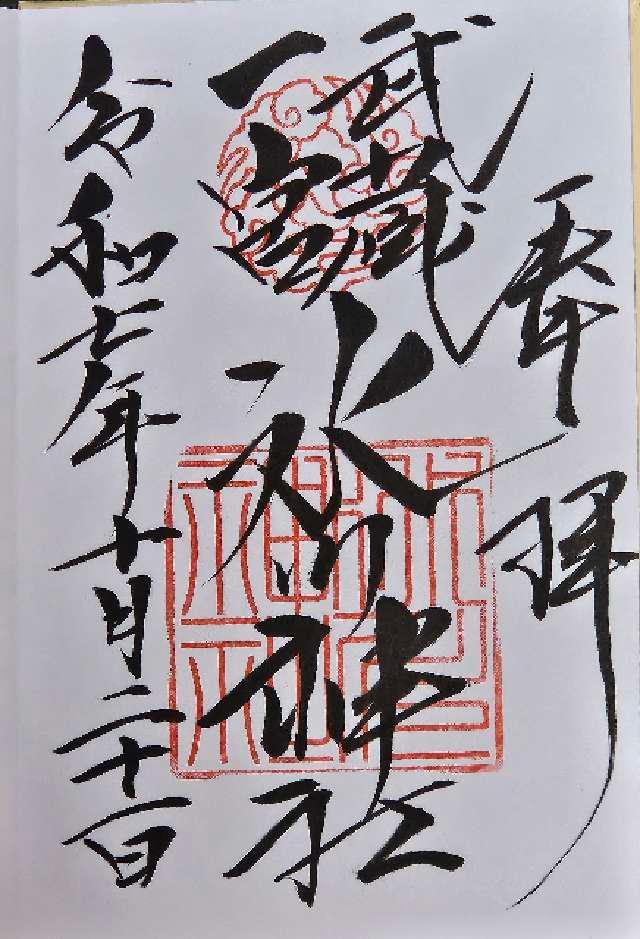 奉拝
武蔵
一宮
氷川神社
令和七年十月二十一日